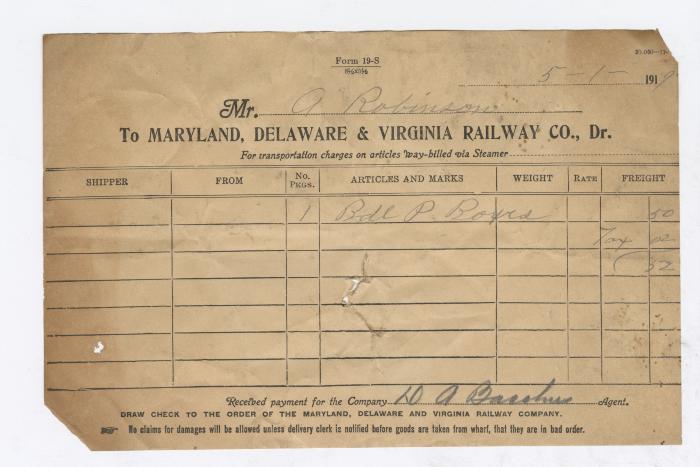 Form 19-S
5-1- 1919
Mr. A Robinson
To MARYLAND, DELAWARE & VIRGINIA RAILWAY CO., Dr.
For transportation charges on articles way-billed via Steamer
SHIPPER FROM No. PKGS. ARTICLES AND MARKS WEIGHT RATE FREIGHT
1 Bdl P. Boxes 50
Tax 02
52
Received payment for the Company D A Agent.
DRAW CHECK TO THE ORDER OF THE MARYLAND, DELAWARE AND VIRGINIA RAILWAY COMPANY.
☞ No claims for damages will be allowed unless delivery clerk is notified before goods are taken from wharf, that they are in bad order.